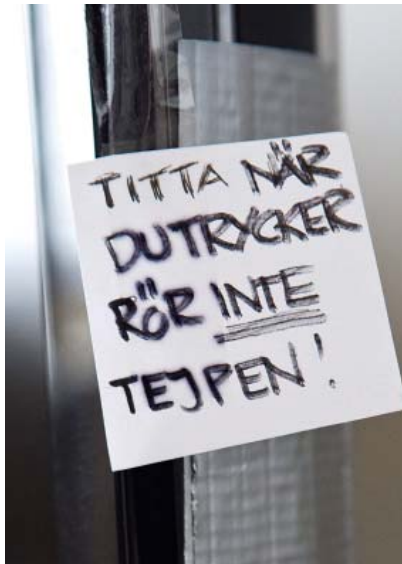 TITTA NÄR
DU TRYCKER
RÖR INTE
TEJPEN!